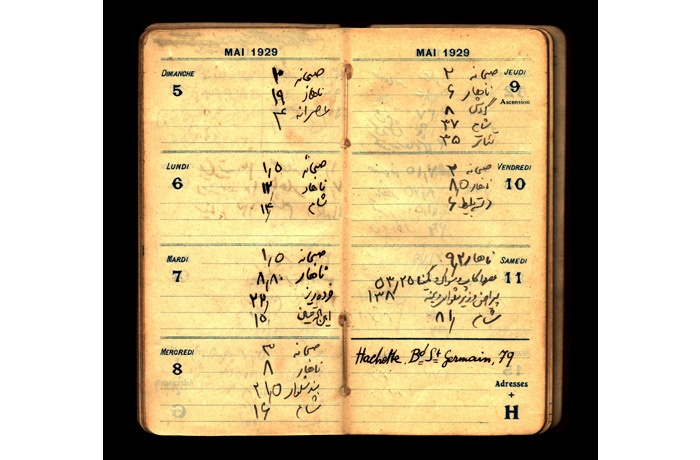 MAI 1929
DIMANCHE
5
صبحانه ۳
ناهار ۱۹
عصرانه ۴
LUNDI
6
صبحانه ۱٫۵
ناهار ۱۲
شام ۱۴
MARDI
7
صبحانه ۱٫۵
ناهار ۸٫۸۰
خرده ریز ۲۲
۱۵
MERCREDI
8
صبحانه ۳
ناهار ۸
بند شلوار ۲۱٫۵
شام ۱۶
MAI 1929
JEUDI
9
Ascension
صبحانه ۲
ناهار ۶
۸
شام ۳۷
تئاتر ۳۵
VENDREDI
10
صبحانه ۲
ناهار ۸٫۵
بلیط ۶
SAMEDI
11
ناهار ۹٫۲
۵۳٫۲۵
۱۳۸
شام ۸۱
Hachette. Bd St Germain, 79
Adresses
+
H